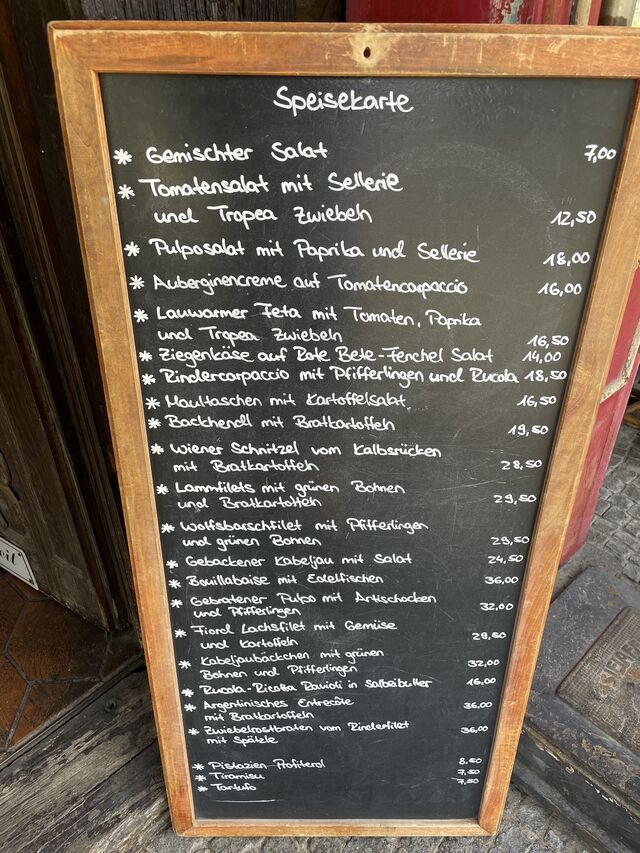 Speisekarte
* Gemischter Salat 7,00
* Tomatensalat mit Sellerie
und Tropea Zwiebeln 12,50
* Pulposalat mit Paprika und Sellerie 18,00
* Auberginencreme auf Tomatencarpaccio 16,00
* Lauwarmer Feta mit Tomaten, Paprika
und Tropea Zwiebeln 16,50
* Ziegenkäse auf Rote Bete-Fenchel Salat 14,00
* Rindercarpaccio mit Pfifferlingen und Rucola 18,50
* Maultaschen mit Kartoffelsalat 16,50
* Backhendl mit Bratkartoffeln 19,50
* Wiener Schnitzel vom Kalbsrücken
mit Bratkartoffeln 28,50
* Lammfilets mit grünen Bohnen
und Bratkartoffeln 29,50
* Wolfsbarschfilet mit Pfifferlingen
und grünen Bohnen 29,50
* Gebackener Kabeljau mit Salat 24,50
* Bouillabaise mit Edelfischen 36,00
* Gebratener Pulpo mit Artischocken
und Pfifferlingen 32,00
* Fjord Lachsfilet mit Gemüse
und Kartoffeln 29,50
* Kabeljaubäckchen mit grünen
Bohnen und Pfifferlingen 32,00
* Rucola-Ricotta Ravioli in Salbeibutter 16,00
* Argentinisches Entrecôte
mit Bratkartoffeln 36,00
* Zwiebelrostbraten vom Rinderfilet
mit Spätzle 36,00
* Pistazien Profiterol 8,50
* Tiramisu 7,50
* Tartufo 7,50